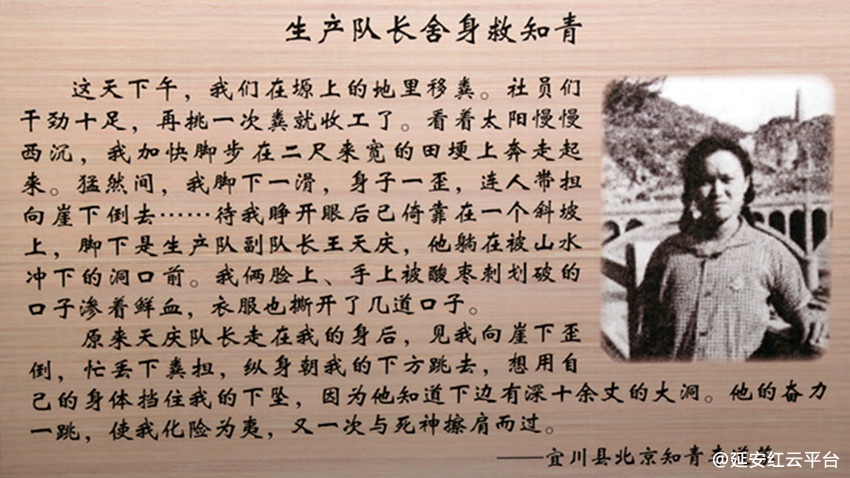 生产队长舍身救知青
这天下午，我们在塬上的地里移粪。社员们
干劲十足，再挑一次粪就收工了。看着太阳慢慢
西沉，我加快脚步在二尺来宽的田埂上奔走起
来。猛然间，我脚下一滑，身子一歪，连人带担
向崖下倒去……待我睁开眼后已倚靠在一个斜坡
上，脚下是生产队副队长王天庆，他躺在被山水
冲下的洞口前。我俩脸上、手上被酸枣刺划破的
口子渗着鲜血，衣服也撕开了几道口子。
原来天庆队长走在我的身后，见我向崖下歪
倒，忙丢下粪担，纵身朝我的下方跳去，想用自
己的身体挡住我的下坠，因为他知道下边有深十余丈的大洞。他的奋力
一跳，使我化险为夷，又一次与死神擦肩而过。
——宜川县北京知青
@延安红云平台